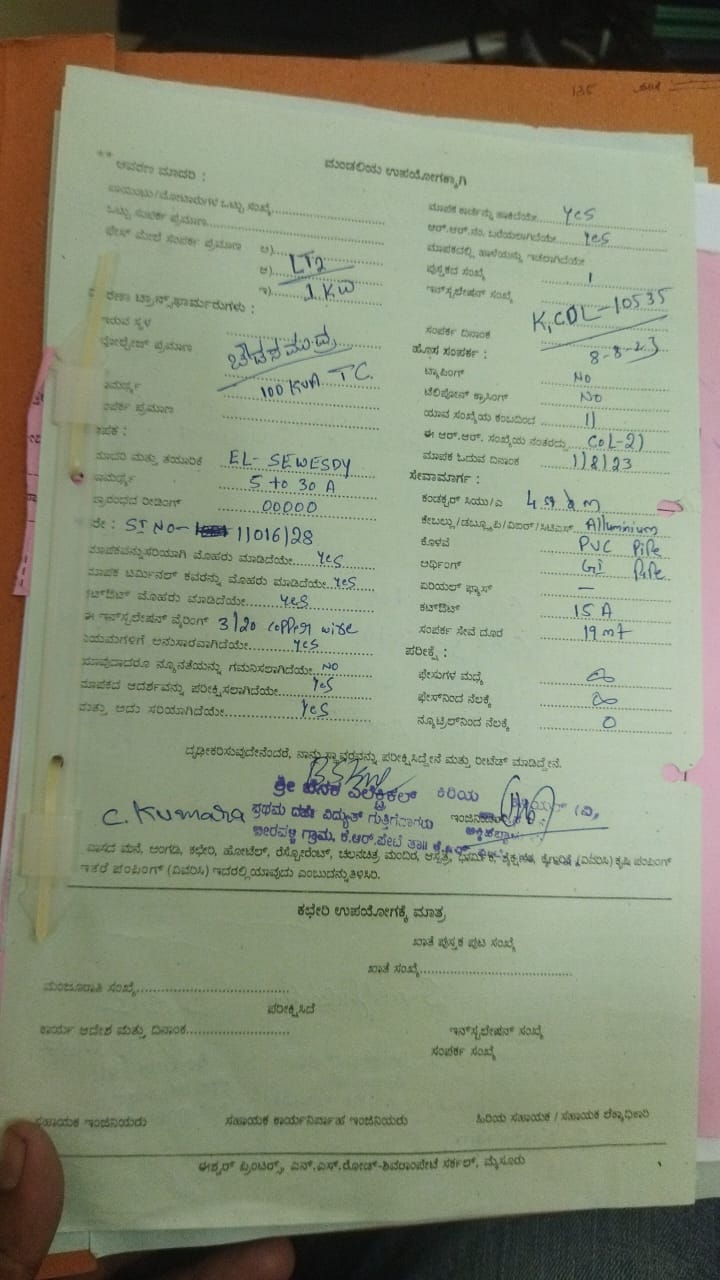 135
ಮಂಡಲಿಯ ಉಪಯೋಗಕ್ಕಾಗಿ
** ಆವರಣ ಮಾದರಿ :
ಒಟ್ಟು ಸಂಖ್ಯೆ
ಒಟ್ಟು ಸಂಪರ್ಕ ಪ್ರಮಾಣ
ಫೇಸ್ ಮೇಲೆ ಸಂಪರ್ಕ ಪ್ರಮಾಣ ಅ)
ಆ) LT2
ಇ) 1 KW
ಟ್ರಾನ್ಸ್‌ಫಾರ್ಮರುಗಳು :
ಇರುವ ಸ್ಥಳ
ವೋಲ್ಟೇಜ್ ಪ್ರಮಾಣ ಚೌಡಸಮುದ್ರ
100 KVA TC.
ಪ್ರಮಾಣ
ಮಾದರಿ ಮತ್ತು ತಯಾರಿಕೆ EL- SEWESDY
5 to 30 A
ಪ್ರಾರಂಭದ ರೀಡಿಂಗ್ 00000
ST NO- 11016128
ಮಾಪಕವನ್ನು ಸರಿಯಾಗಿ ಮೊಹರು ಮಾಡಿದೆಯೇ Yes
ಮಾಪಕ ಟರ್ಮಿನಲ್ ಕವರನ್ನು ಮೊಹರು ಮಾಡಿದೆಯೇ Yes
ಕಟ್‌ಔಟ್ ಮೊಹರು ಮಾಡಿದೆಯೇ Yes
ಈ ಇನ್‌ಸ್ಟಲೇಷನ್ ವೈರಿಂಗ್ 3/20 copper wire
ನಿಯಮಗಳಿಗೆ ಅನುಸಾರವಾಗಿದೆಯೇ Yes
ಯಾವುದಾದರೂ ನ್ಯೂನತೆಯನ್ನು ಗಮನಿಸಲಾಗಿದೆಯೇ NO
ಮಾಪಕದ ಆದರ್ಶವನ್ನು ಪರೀಕ್ಷಿಸಲಾಗಿದೆಯೇ Yes
ಮತ್ತು ಅದು ಸರಿಯಾಗಿದೆಯೇ Yes
ಮಾಪಕ ಕಾರ್ಡನ್ನು ಹಾಕಿದೆಯೇ Yes
ಆರ್.ಆರ್.ನಂ. ಬರೆಯಲಾಗಿದೆಯೇ Yes
ಮಾಪಕದಲ್ಲಿ ಹಾಳೆಯನ್ನು ಇಡಲಾಗಿದೆಯೇ
ಪುಸ್ತಕದ ಸಂಖ್ಯೆ 1
ಇನ್‌ಸ್ಟಲೇಷನ್ ಸಂಖ್ಯೆ K,COL-10535
ಸಂಪರ್ಕ ದಿನಾಂಕ 8-8-23
ಹೊಸ ಸಂಪರ್ಕ :
ಟ್ಯಾಪಿಂಗ್ NO
ಟೆಲಿಫೋನ್ ಕ್ರಾಸಿಂಗ್ NO
ಯಾವ ಸಂಖ್ಯೆಯ ಕಂಬದಿಂದ 11
ಈ ಆರ್.ಆರ್. ಸಂಖ್ಯೆಯ ನಂತರದ್ದು COL-21
ಮಾಪಕ ಓದುವ ದಿನಾಂಕ 1/8/23
ಸೇವಾಮಾರ್ಗ :
ಕಂಡಕ್ಟರ್ ಸಿಯು/ಎ
ಕೇಬಲ್ಲು/ಡಬ್ಲ್ಯೂಪಿ/ವಿಐಆರ್/ಸಿಟಿಎಸ್ Alluminium
ಕೊಳವೆ PVC Pipe
ಅರ್ಥಿಂಗ್ GI Pipe.
ಏರಿಯಲ್ ಫ್ಯೂಸ್ –
ಕಟ್‌ಔಟ್ 15 A
ಸಂಪರ್ಕ ಸೇವೆ ದೂರ 19 mt
ಪರೀಕ್ಷೆ :
ಫೇಸುಗಳ ಮಧ್ಯೆ ∞
ಫೇಸ್‌ನಿಂದ ನೆಲಕ್ಕೆ ∞
ನ್ಯೂಟ್ರಲ್‌ನಿಂದ ನೆಲಕ್ಕೆ 0
ದೃಢೀಕರಿಸುವುದೇನೆಂದರೆ, ನಾನು ಸ್ಥಾವರವನ್ನು ಪರೀಕ್ಷಿಸಿದ್ದೇನೆ ಮತ್ತು ರೀಟೆಡ್ ಮಾಡಿದ್ದೇನೆ.
ಶ್ರೀ ಎಲೆಕ್ಟ್ರಿಕಲ್ ಕಿರಿಯ
C. Kumara ಪ್ರಥಮ ದರ್ಜೆ ವಿದ್ಯುತ್ ಗುತ್ತಿಗೆದಾರರು
ಗ್ರಾಮ, ಕೆ.ಆರ್.ಪೇಟೆ ತಾ॥
ವಾಸದ ಮನೆ, ಅಂಗಡಿ, ಕಛೇರಿ, ಹೋಟೆಲ್, ರೆಸ್ಟೋರೆಂಟ್, ಚಲನಚಿತ್ರ ಮಂದಿರ, ಆಸ್ಪತ್ರೆ, (ವಿವರಿಸಿ) ಕೃಷಿ ಪಂಪಿಂಗ್
ಇತರೆ ಪಂಪಿಂಗ್ (ವಿವರಿಸಿ) ಇದರಲ್ಲಿ ಯಾವುದು ಎಂಬುದನ್ನು ತಿಳಿಸಿರಿ.
ಕಛೇರಿ ಉಪಯೋಗಕ್ಕೆ ಮಾತ್ರ
ಖಾತೆ ಪುಸ್ತಕ ಪುಟ ಸಂಖ್ಯೆ
ಖಾತೆ ಸಂಖ್ಯೆ
ಮಂಜೂರಾತಿ ಸಂಖ್ಯೆ
ಪರೀಕ್ಷಿಸಿದೆ
ಕಾರ್ಯ ಆದೇಶ ಮತ್ತು ದಿನಾಂಕ
ಇನ್‌ಸ್ಟಲೇಷನ್ ಸಂಖ್ಯೆ
ಸಂಪರ್ಕ ಸಂಖ್ಯೆ
ಸಹಾಯಕ ಇಂಜಿನಿಯರು ಸಹಾಯಕ ಕಾರ್ಯನಿರ್ವಾಹ ಇಂಜಿನಿಯರು ಹಿರಿಯ ಸಹಾಯಕ / ಸಹಾಯಕ ಲೆಕ್ಕಾಧಿಕಾರಿ
ಈಶ್ವರ್ ಪ್ರಿಂಟರ್ಸ್, ಎನ್.ಎಸ್.ರೋಡ್-ಶಿವರಾಂಪೇಟೆ ಸರ್ಕಲ್, ಮೈಸೂರು